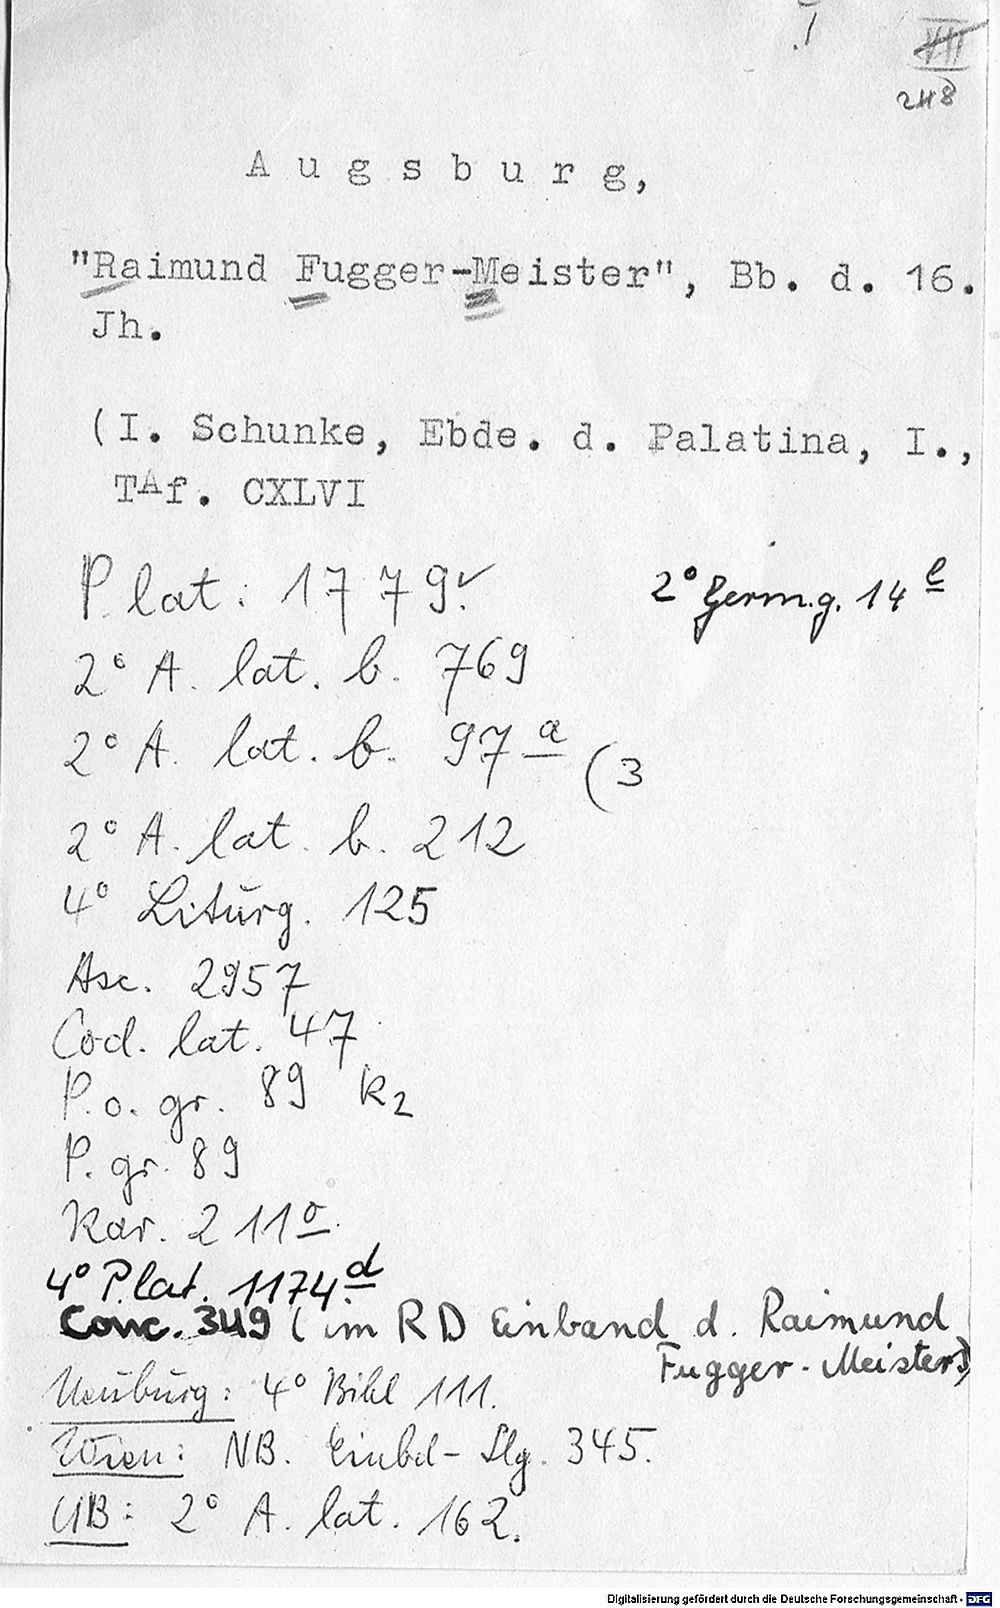 I
VII
248
Augsburg,
"Raimund Fugger-Meister", Bb. d. 16.
Jh.
(I. Schunke, Ebde. d. Palatina, I.,
TAf. CXLVI
P. lat. 1779.
2° Germ.g. 14 e
2° A. lat. b. 769
2° A. lat. b. 97 a (3
2° A. lat. b. 212
4° Liturg. 125
Asc. 2957
Cod. lat. 47
P.o. gr. 89 K2
P. gr. 89
Rar. 211 o
4° P.lat. 1174 d
Conc. 349 ( im RD Einband d. Raimund
Fugger-Meisters)
Neuburg: 4° Bibl 111.
Wien: NB. Einbd-Slg. 345.
UB: 2° A. lat. 162.
Digitalisierung gefördert durch die Deutsche Forschungsgemeinschaft - DFG